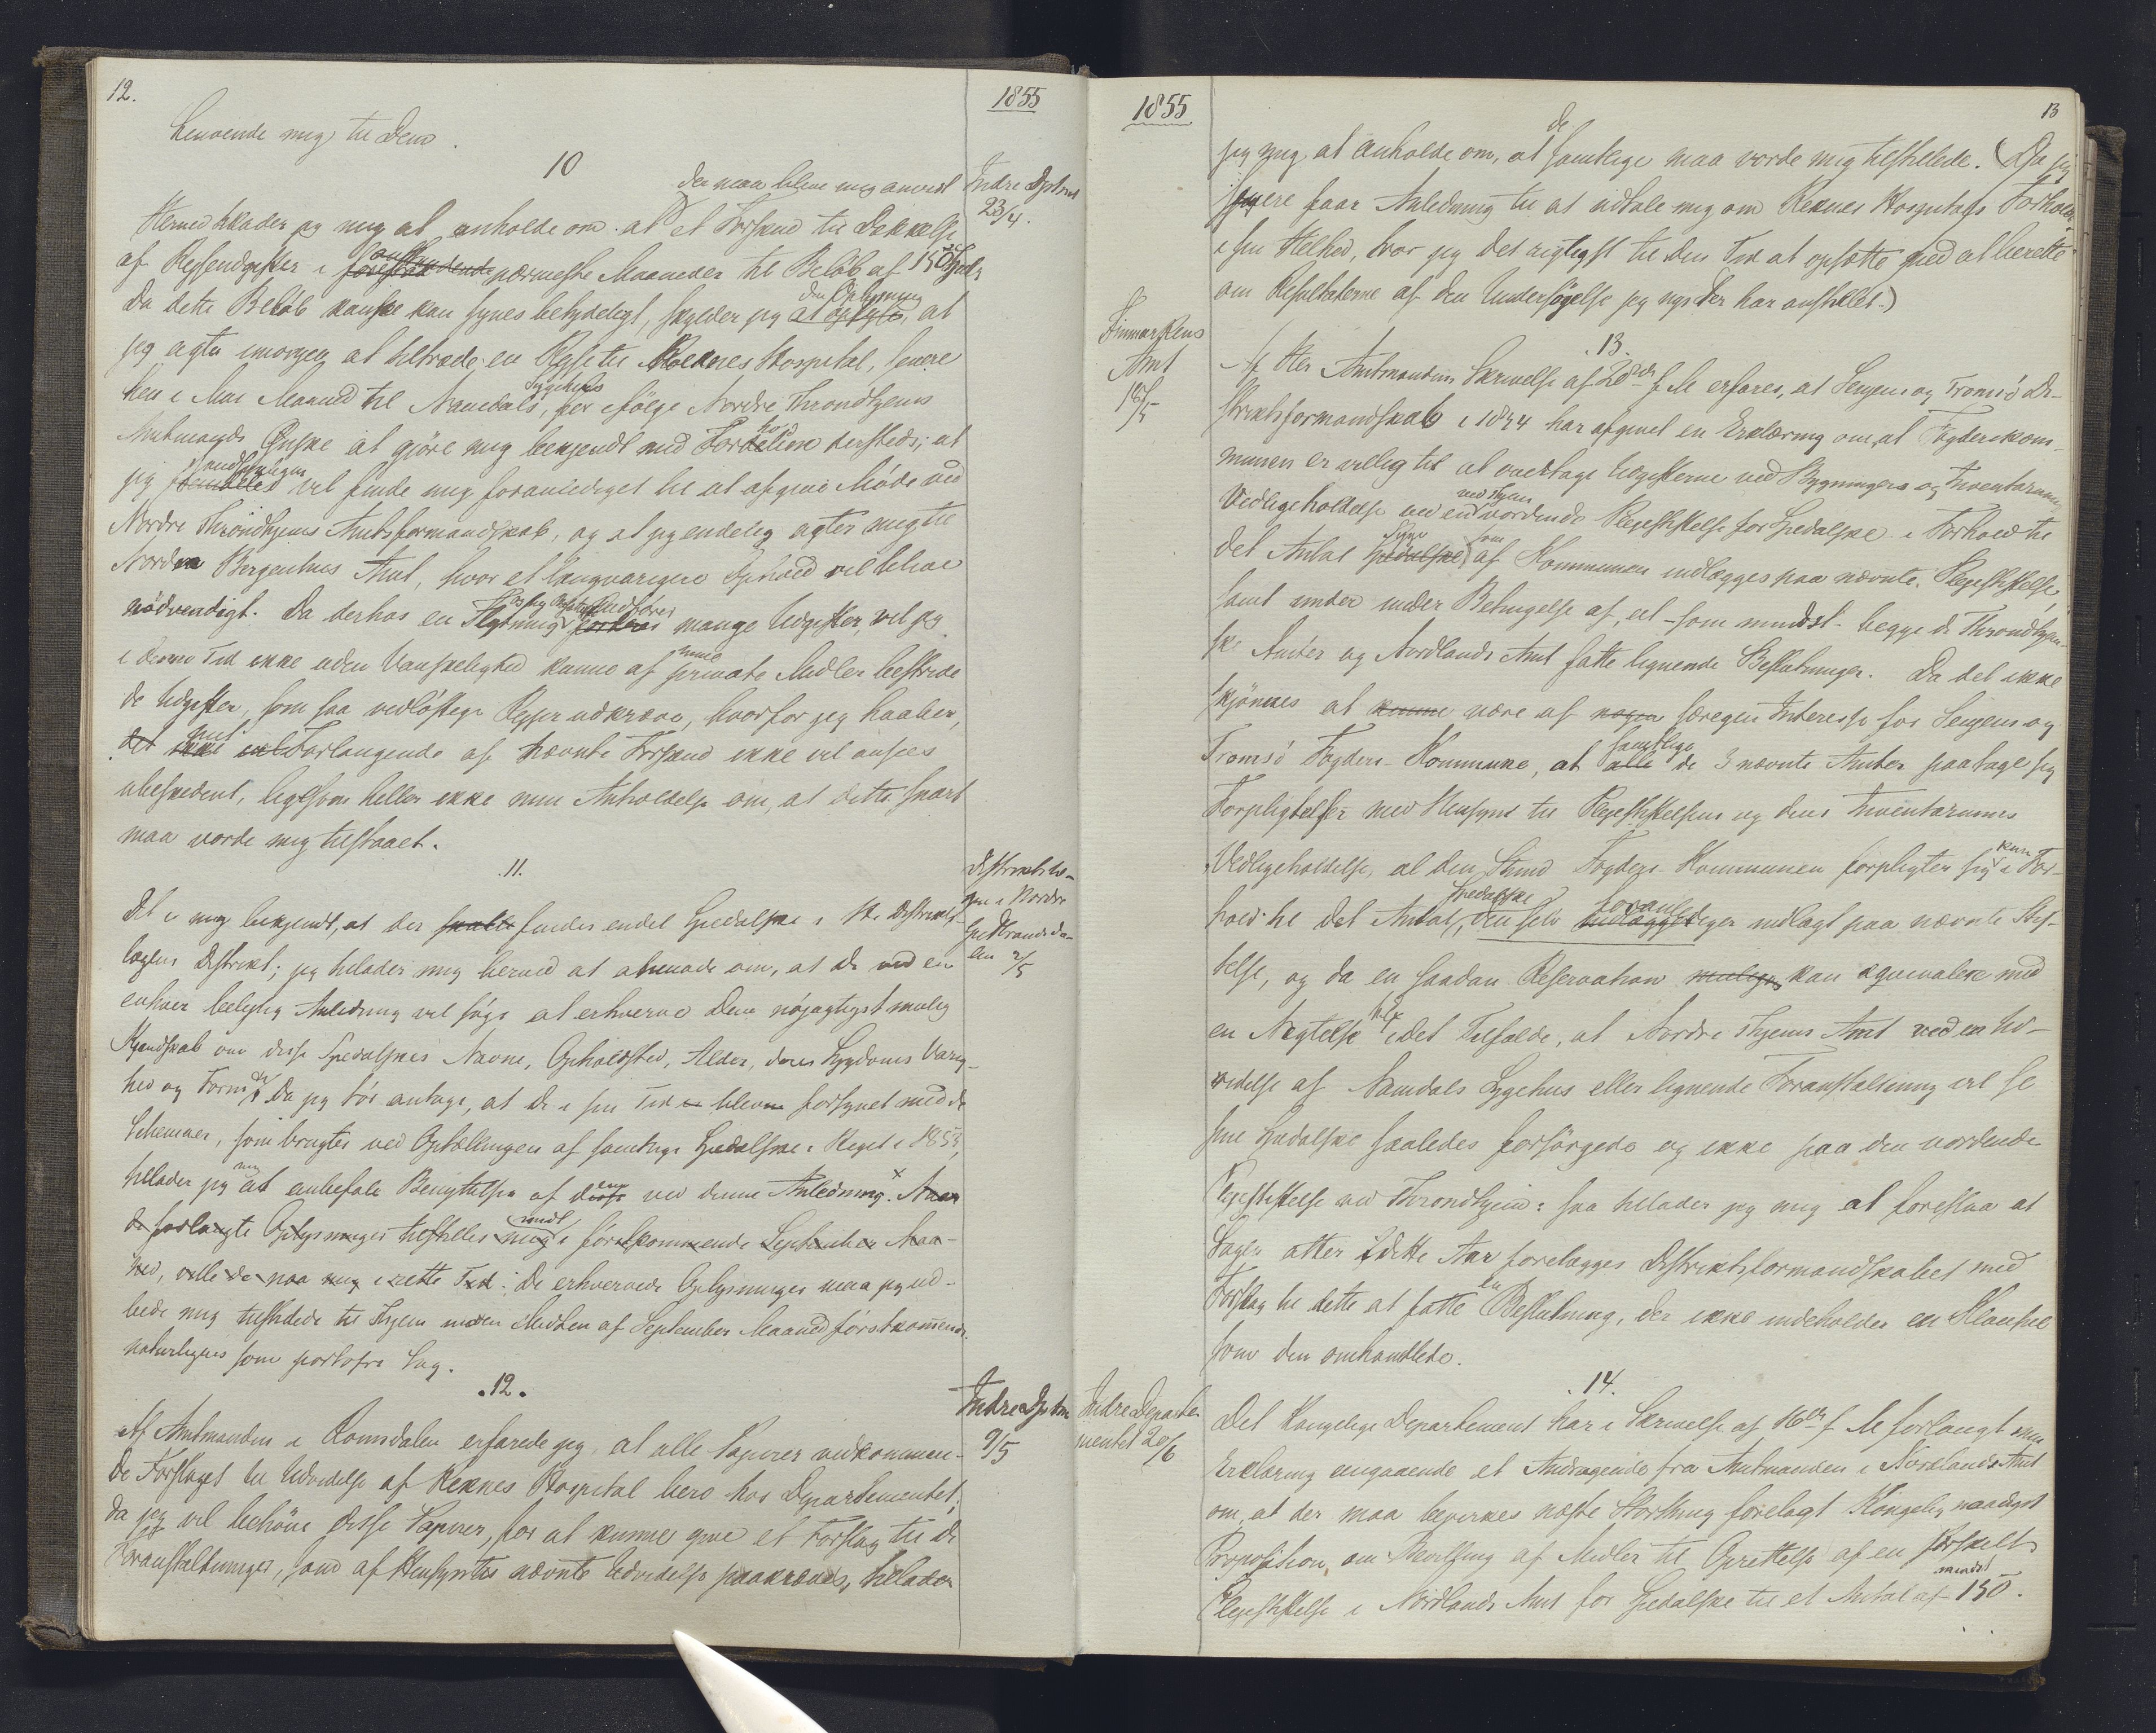 12.
1855
henvende mig til Dem.
10
Indre Dptmt
23/4.
der maa blive mig anvist
Herved tillader jeg mig at anholde om at et Forskud til Dækkelse
af Reiseudgifter i forestaaende nærmeste Maaneder til Beløb af 150 Spd
Da dette Beløb kanske kan synes betydeligt, skylder jeg at oplyse, den Oplysning at
jeg agter imorgen at tiltræde en Reise til Reknes Hospital, senere
hen i Mai Maaned til Namdals Sygehus, for ifølge Nordre Throndhjems
Amtmands Ønske at gjøre mig bekjendt med Forholdene dersteds; at
jeg sandsynligen vil finde mig foranlediget til at afgive Møde ved
Nordre Throndhjems Amtsformandskab, og at jeg endelig agter mig til
Nordre Bergenhus Amt, hvor et langvarigere Ophold vil blive
nødvendigt. Da derhos en Flytning medfører mange Udgifter, vil jeg
i denne Tid ikke uden Vanskelighed kunne af mine private Midler bestride
de Udgifter, som saa vedløftige Reiser udkræve, hvorfor jeg haaber,
det ikke vil Forlangende af nævnte Forskud ikke vil ansees
ubeskedent, ligesom heller ikke min Anholdelse om, at dette snart
maa vorde mig tilstaaet.
.11.
Distriktslæ-
gen i Nordre
Gudbrandsda-
len 2/5
Det er mig bekjendt, at der skulle findes endel Spedalske i Hr Distrikts-
lægens Distrikt; jeg tillader mig herved at anmode om, at De ved en
enhver beleilig Anledning vil søge at erhverve Dem nøjagtigst mulig
Kjendskab om disse Spedalskes Navne, Opholdssted, Alder, deres Sygdoms Varig-
hed og Form. Da jeg tør antage, at De i sin Tid er bleven forsynet med de
Schemaer, som brugtes ved Optællingen af samtlige Spedalske i Riget i 1853,
tillader jeg mig at anbefale Benyttelsen af disse ved denne Anledning. Naar
de forlangte Oplysninger tilstilles mig i førstkommende September Maa-
ned, ville de naa mig i rette Tid. De erhvervede Oplysninger maa jeg ud-
bede mig tilstillede til Thjem inden Midten af September Maaned førstkommende
naturligvis som portofri Sag.
.12.
Indre Dptm
9/5
Af Amtmanden i Romsdalen erfarede jeg, at alle Papirer vedkommen-
de Forslaget til Udvidelse af Reknes Hospital bero hos Departementet;
da jeg vil behøve disse Papirer, for at kunne give et Forslag til de
Foranstaltninger, som af Hensyn til nævnte Udvidelse paakræves, tillader
1855
13
jeg mig at anholde om, at de samtlige maa vorde mig tilstillede. (Da jeg
senere faar Anledning til at udtale mig om Reknes Hospitals Forholde
i sin Helhed, tror jeg det rigtigst til den Tid at opsætte med at berette
om Resultaterne af den Undersøgelse jeg nys der har anstillet.)
Finmarkens
Amt
18/5
.13.
Af Hr Amtmandens Skrivelse af 20de f M erfares, at Senjens og Tromsø Di-
striktsformandskab i 1844 har afgivet en Erklæring om, at Fogderikom-
munen er villig til at overtage Udgifterne ved Bygningers og Inventariums
Vedligeholdelse ved en ved Thjem vordende Pleiestiftelse for Spedalske i Forhold til
det Antal Syge som af Kommunen indlægges paa nævnte Pleiestiftelse,
samt under under Betingelse af, at - som mindst - begge de Throndhjem-
ske Amter og Nordlands Amt fatte lignende Beslutninger. Da det ikke
skjønnes at kunne være af nogen særegen Interesse for Senjens og
Tromsø Fogderi-Kommune, at alle samtlige de 3 nævnte Amter paatage sig
Forpligtelser med Hensyn til Pleiestiftelsens og dens Inventariums
Vedligeholdelse, al den Stund Fogderi-Kommunen forpligter sig kun i For-
hold til det Antal Spedalske, den selv foranlediger indlagt paa nævnte Stif-
telse, og da en saadan Reservation muligen kan æquivalere med
en Nægtelse i det Tilfælde, at Nordre Thjems Amt ved en Ud-
videlse af Namdals Sygehus eller lignende Foranstaltning vil se
sine Spedalske saaledes forsørgede og ikke paa den vordende
Pleiestiftelse ved Throndhjem: saa tillader jeg mig at foreslaa at
Sagen atter i dette Aar forelægges Distriktsformandskabet med
Forslag til dette at fatte en Beslutning, der ikke indeholder en Klausul
som den omhandlede.
.14.
Indre Departe
mentet 20/6
Det Kongelige Departement har i Skrivelse af 16de f M forlangt min
Erklæring angaaende et Andragende fra Amtmanden i Nordlands Amt
om, at der maa bevirkes næste Storthing forelagt Kongelig naadigst
Proposition om Bevilgning af Midler til Oprettelse af en særskilt
Pleiestiftelse i Nordlands Amt for Spedalske til et Antal af mindst 150.